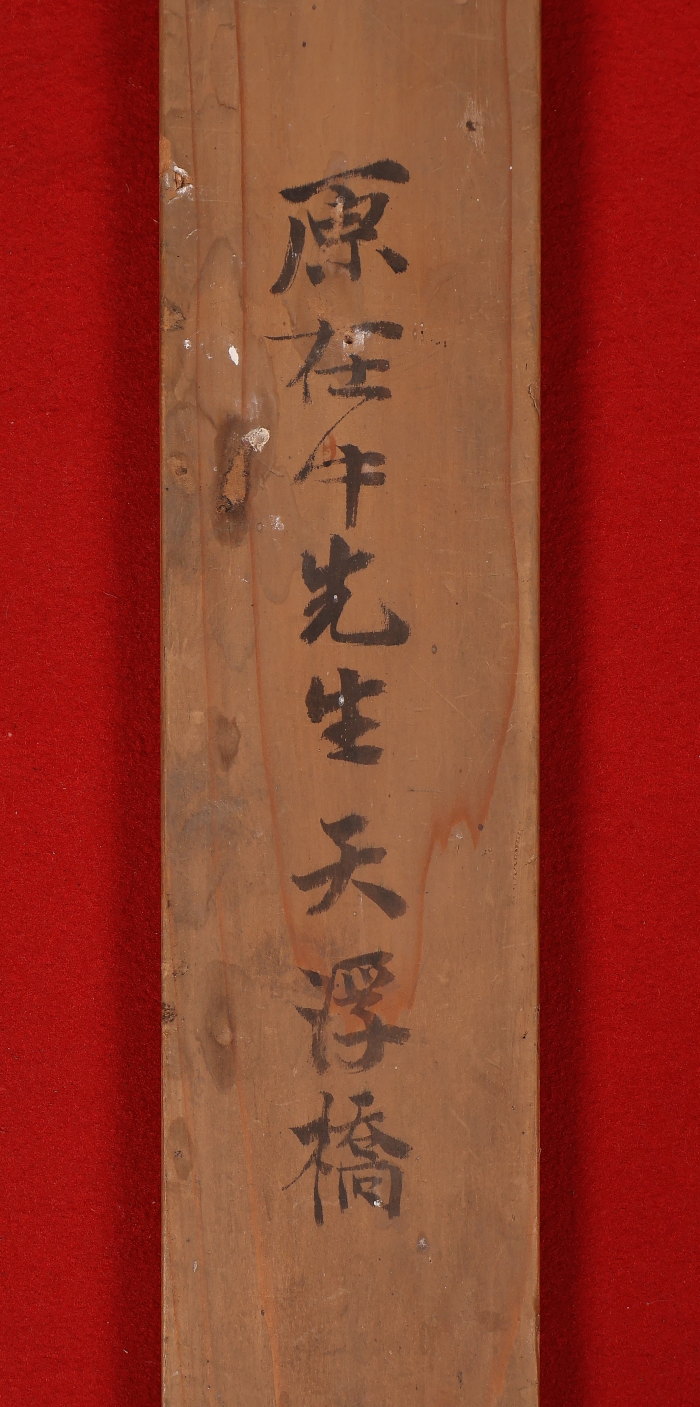 原在牛先生 天浮橋